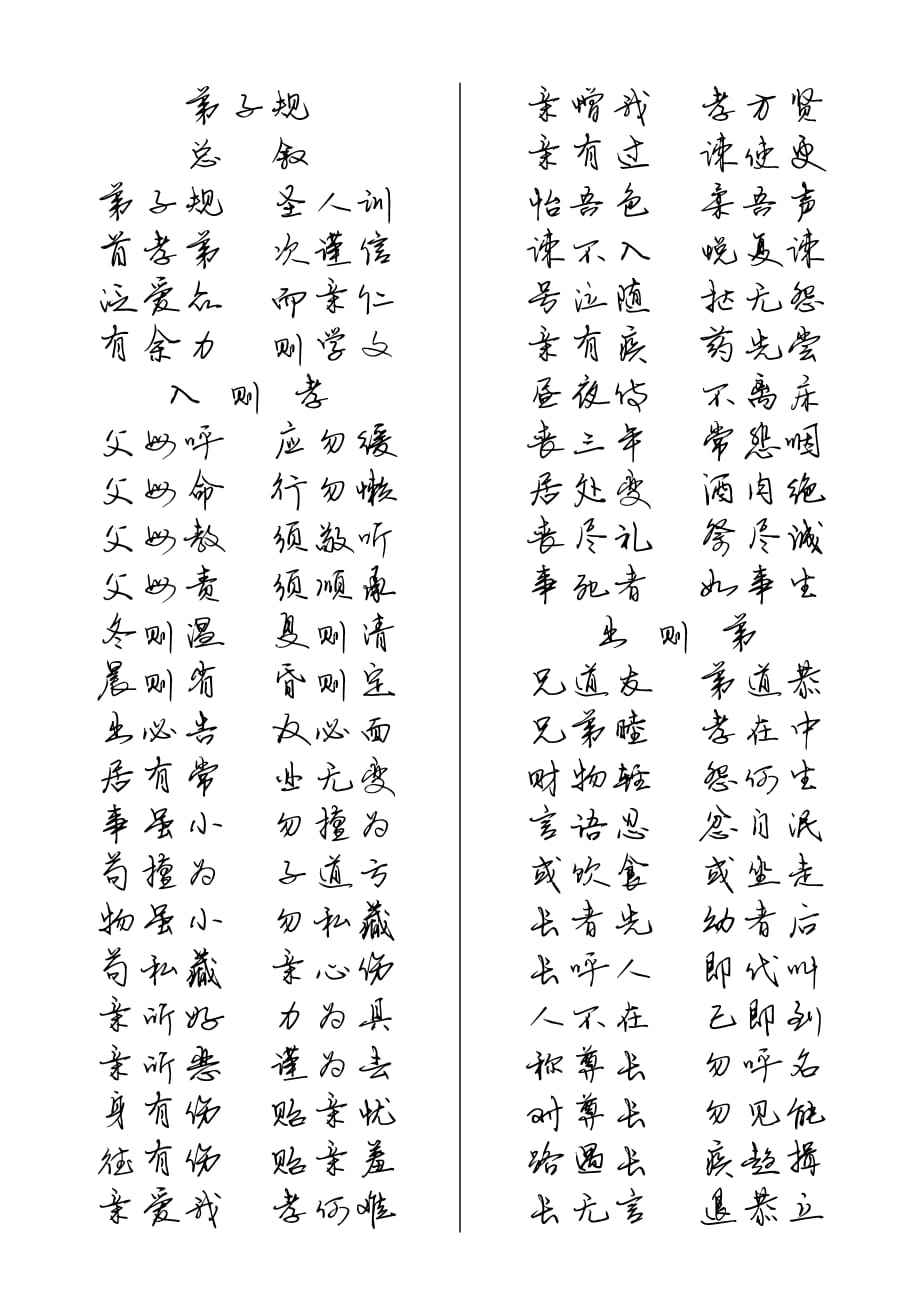 弟子规
总 叙
弟子规 圣人训
首孝弟 次谨信
泛爱众 而亲仁
有余力 则学文
入则孝
父母呼 应勿缓
父母命 行勿懒
父母教 须敬听
父母责 须顺承
冬则温 夏则清
晨则省 昏则定
出必告 反必面
居有常 业无变
事虽小 勿擅为
苟擅为 子道亏
物虽小 勿私藏
苟私藏 亲心伤
亲所好 力为具
亲所恶 谨为去
身有伤 贻亲忧
德有伤 贻亲羞
亲爱我 孝何难
亲憎我 孝方贤
亲有过 谏使更
怡吾色 柔吾声
谏不入 悦复谏
号泣随 挞无怨
亲有疾 药先尝
昼夜侍 不离床
丧三年 常悲咽
居处变 酒肉绝
丧尽礼 祭尽诚
事死者 如事生
出则弟
兄道友 弟道恭
兄弟睦 孝在中
财物轻 怨何生
言语忍 忿自泯
或饮食 或坐走
长者先 幼者后
长呼人 即代叫
人不在 己即到
称尊长 勿呼名
对尊长 勿见能
路遇长 疾趋揖
长无言 退恭立